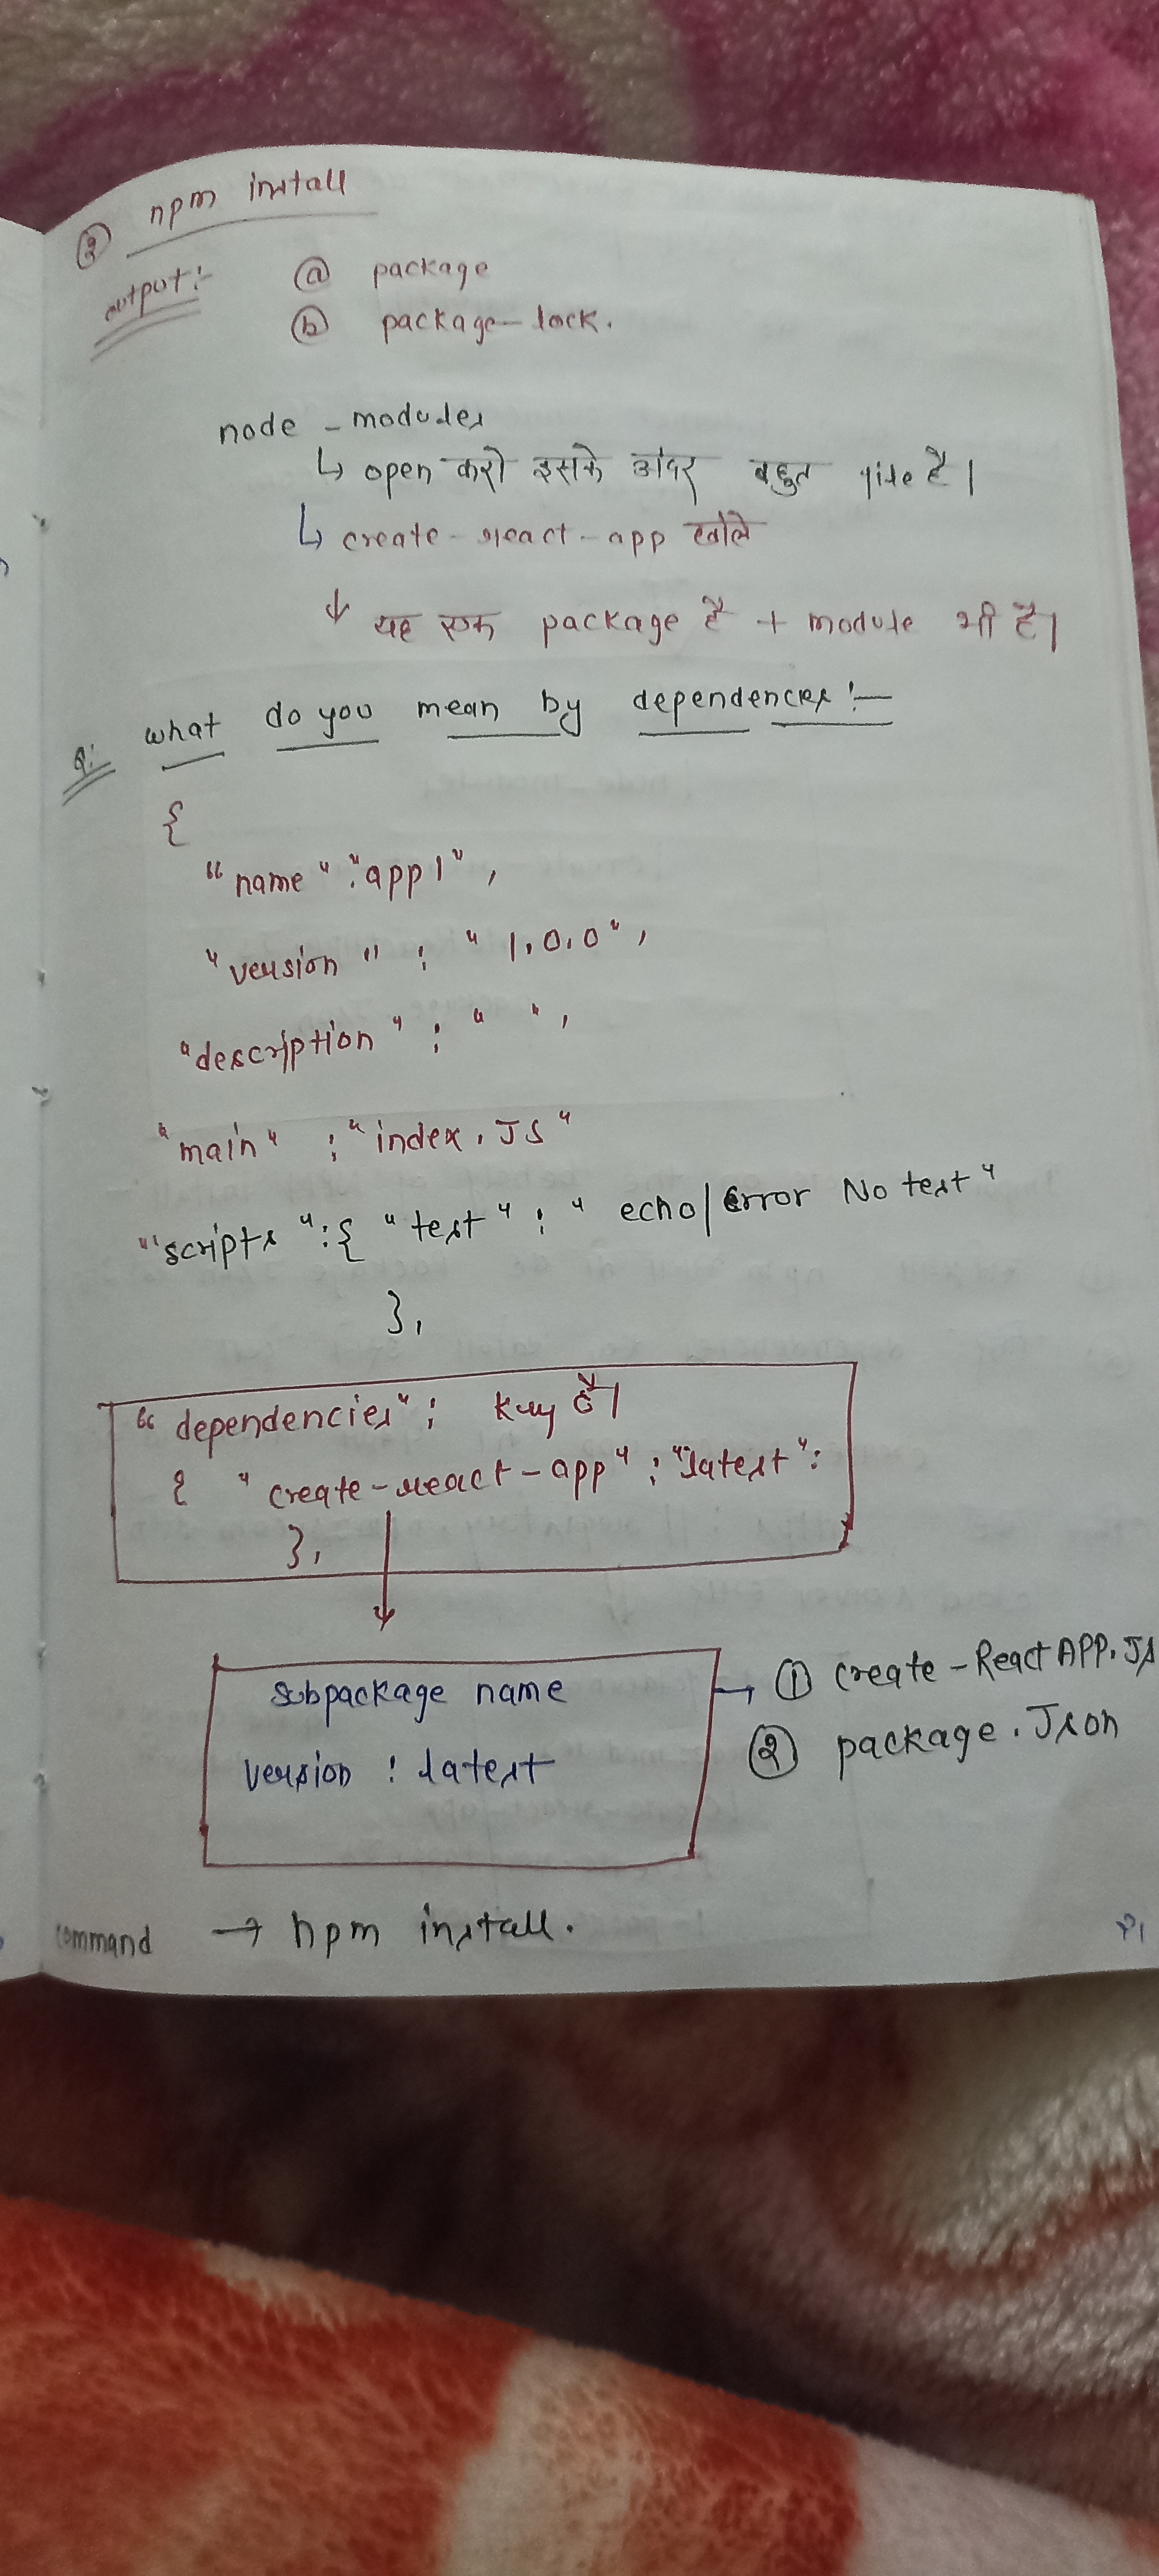 ③ npm install
output:-
ⓐ package
ⓑ package-lock.
node-modules
↳ open करो इसके अंदर बहुत file है।
↳ create-react-app खोले
↓ यह एक package है + module भी है।
Q: what do you mean by dependencies:-
{
"name":"app1",
"version" : "1.0.0",
"description" : " ",
"main" : "index.JS"
"scripts":{ "test" : "echo/error No test"
},
"dependencies": key है।
{ "create-react-app" : "latest":
},
subpackage name
version : latest
→ ① create-React APP.JS
② package.Json
command → npm install.